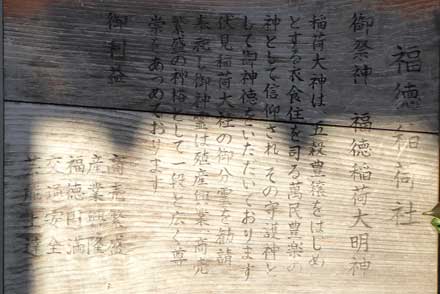 福徳稲荷社
御祭神　福徳稲荷大明神
稲荷大神は、五穀豊穣をはじめ
とする衣食住を司る萬民豊楽の
神として信仰され、その守護神と
して御神徳をいただいております
伏見稲荷大社の御分霊を勧請
繁盛の神格として一段と広く尊
崇をあつめております
御利益
商売繁盛
産業興隆
福徳円満
交通安全
芸能上達